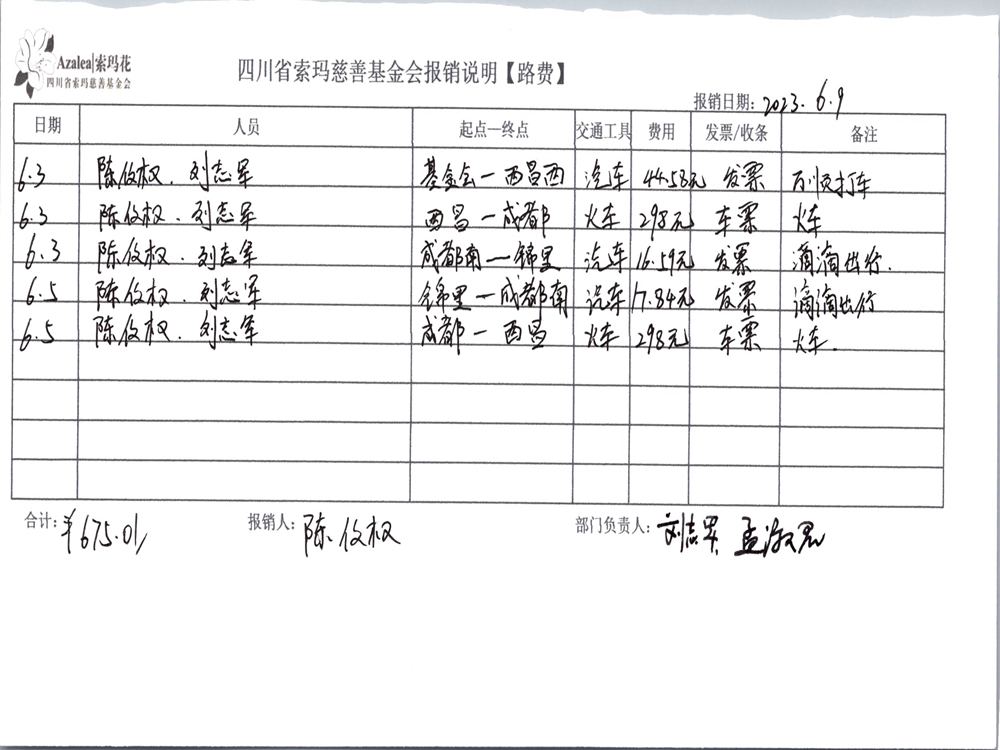 Azalea|索玛花
四川省索玛慈善基金会
四川省索玛慈善基金会报销说明【路费】
报销日期：2023.6.9
日期 人员 起点—终点 交通工具 费用 发票/收条 备注
6.3 陈攸权.刘志军 基金会—西昌西 汽车 44.58元 发票 打车
6.3 陈攸权.刘志军 西昌—成都 火车 298元 车票 火车
6.3 陈攸权.刘志军 成都南—锦里 汽车 16.59元 发票 滴滴出行.
6.5 陈攸权.刘志军 锦里—成都南 汽车 17.84元 发票 滴滴出行
6.5 陈攸权.刘志军 成都—西昌 火车 298元 车票 火车.
合计：￥675.01/ 报销人：陈攸权 部门负责人：刘志军 孟